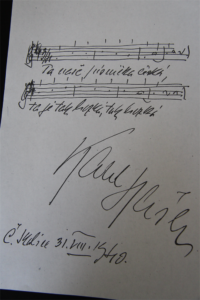 Ta naše písnička česká
ta je tak hezká, tak hezká
Karel Hašler
Č. Skalice 31. VIII. 1940.